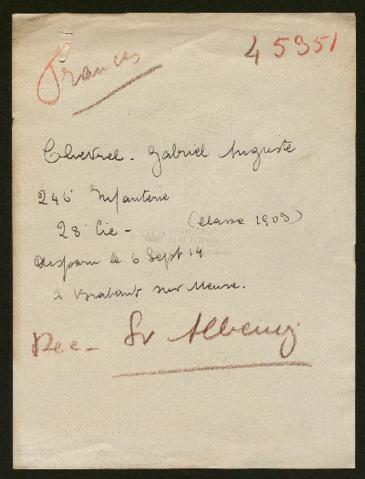 Frances
45351
Chevrel - Gabriel Auguste
246e Infanterie
28 Cie - (classe 1909)
disparu le 6 Sept 14
à Brabant sur Meuse.
Rec - Sr